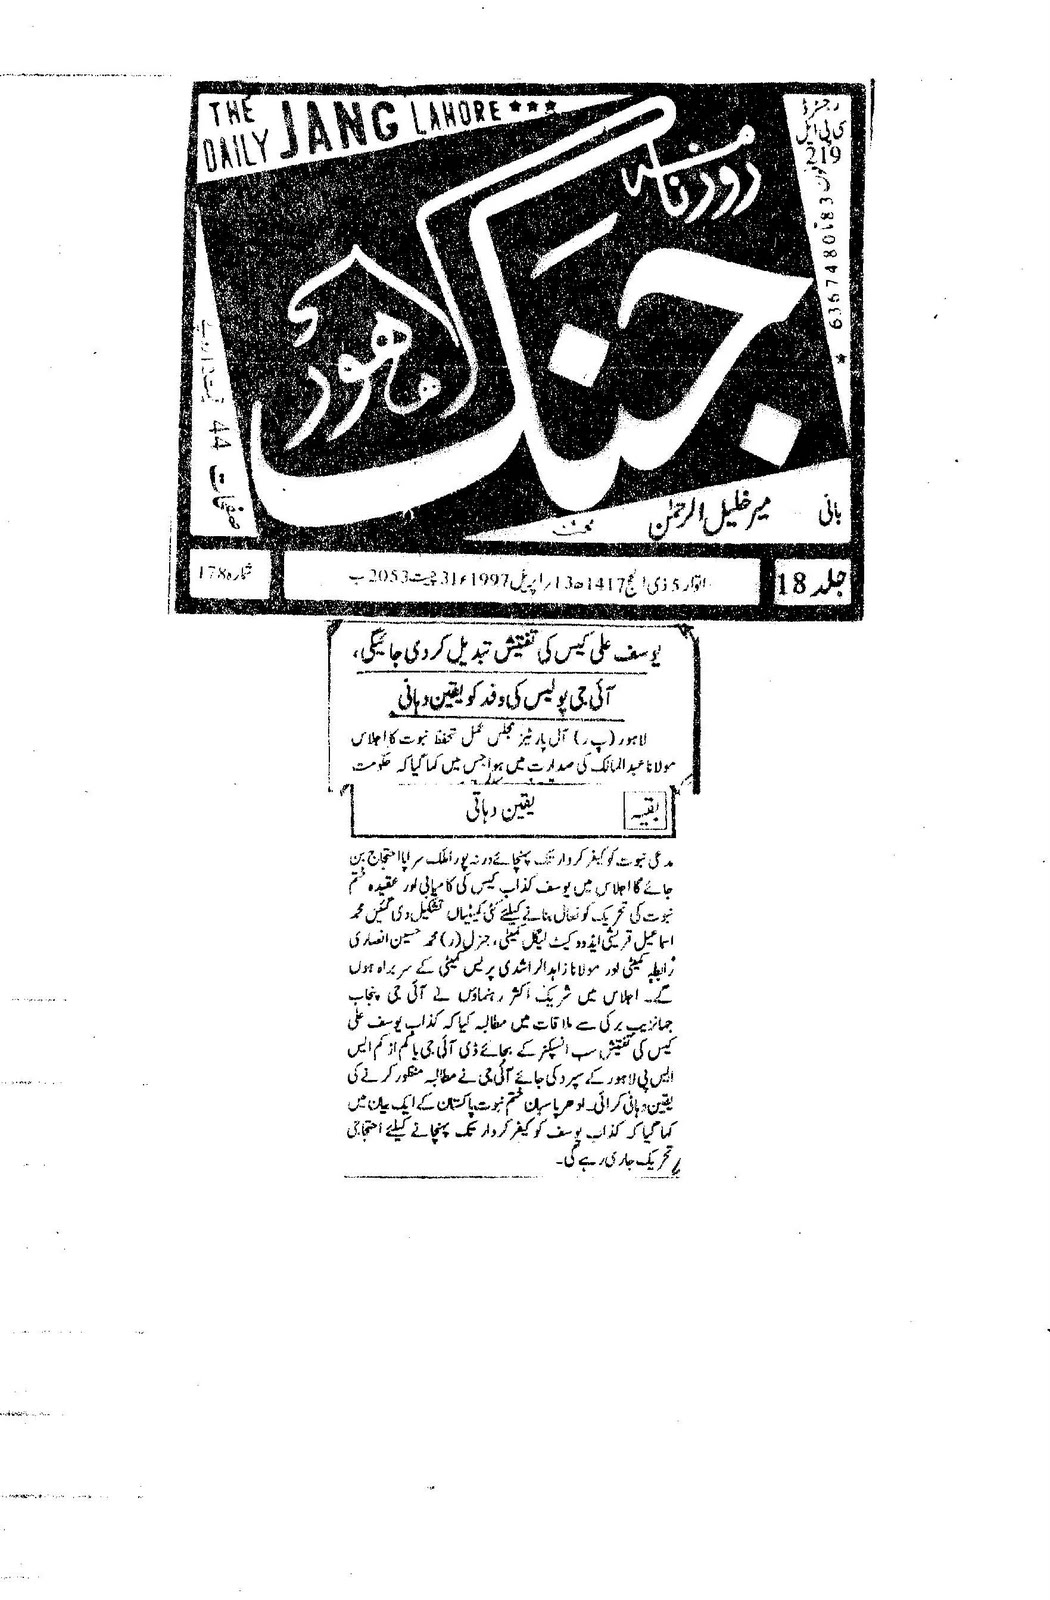 THE DAILY JANG LAHORE ★★★
رجسٹرڈ
سی پی ایل
219
فون 6367480تا83
روزنامہ
جنگ
لاہور
صفحات 44
بانی میر خلیل الرحمٰن
جلد 18
اتوار 5 ذی الحج 1417ھ 13 اپریل 1997ء 31 چیت 2053 ب
شمارہ 178
یوسف علی کیس کی تفتیش تبدیل کر دی جائیگی،
آئی جی پولیس کی وفد کو یقین دہانی
لاہور (پ ر) آل پارٹیز مجلس عمل تحفظ نبوت کا اجلاس
مولانا عبدالمالک کی صدارت میں ہوا جس میں کہا گیا کہ حکومت
بقیہ یقین دہانی
مدعی نبوت کو کیفر کردار تک پہنچائے ورنہ پورا ملک سراپا احتجاج بن
جائے گا اجلاس میں یوسف کذاب کیس کی کامیابی اور عقیدہ ختم
نبوت کی تحریک کو فعال بنانے کیلئے کئی کمیٹیاں تشکیل دی گئیں محمد
اسماعیل قریشی ایڈووکیٹ لیگل کمیٹی، جنرل (ر) محمد حسین انصاری
رابطہ کمیٹی اور مولانا زاہد الراشدی پریس کمیٹی کے سربراہ ہوں
گے۔ اجلاس میں شریک اکثر رہنماؤں نے آئی جی پنجاب
جہانزیب برکی سے ملاقات میں مطالبہ کیا کہ کذاب یوسف علی
کیس کی تفتیش سب انسپکٹر کے بجائے ڈی آئی جی یا کم از کم ایس
ایس پی لاہور کے سپرد کی جائے آئی جی نے مطالبہ منظور کرنے کی
یقین دہانی کرائی۔ ادھر پاسبان ختم نبوت پاکستان کے ایک بیان میں
کہا گیا کہ کذاب یوسف کو کیفر کردار تک پہنچانے کیلئے احتجاجی
تحریک جاری رہے گی۔